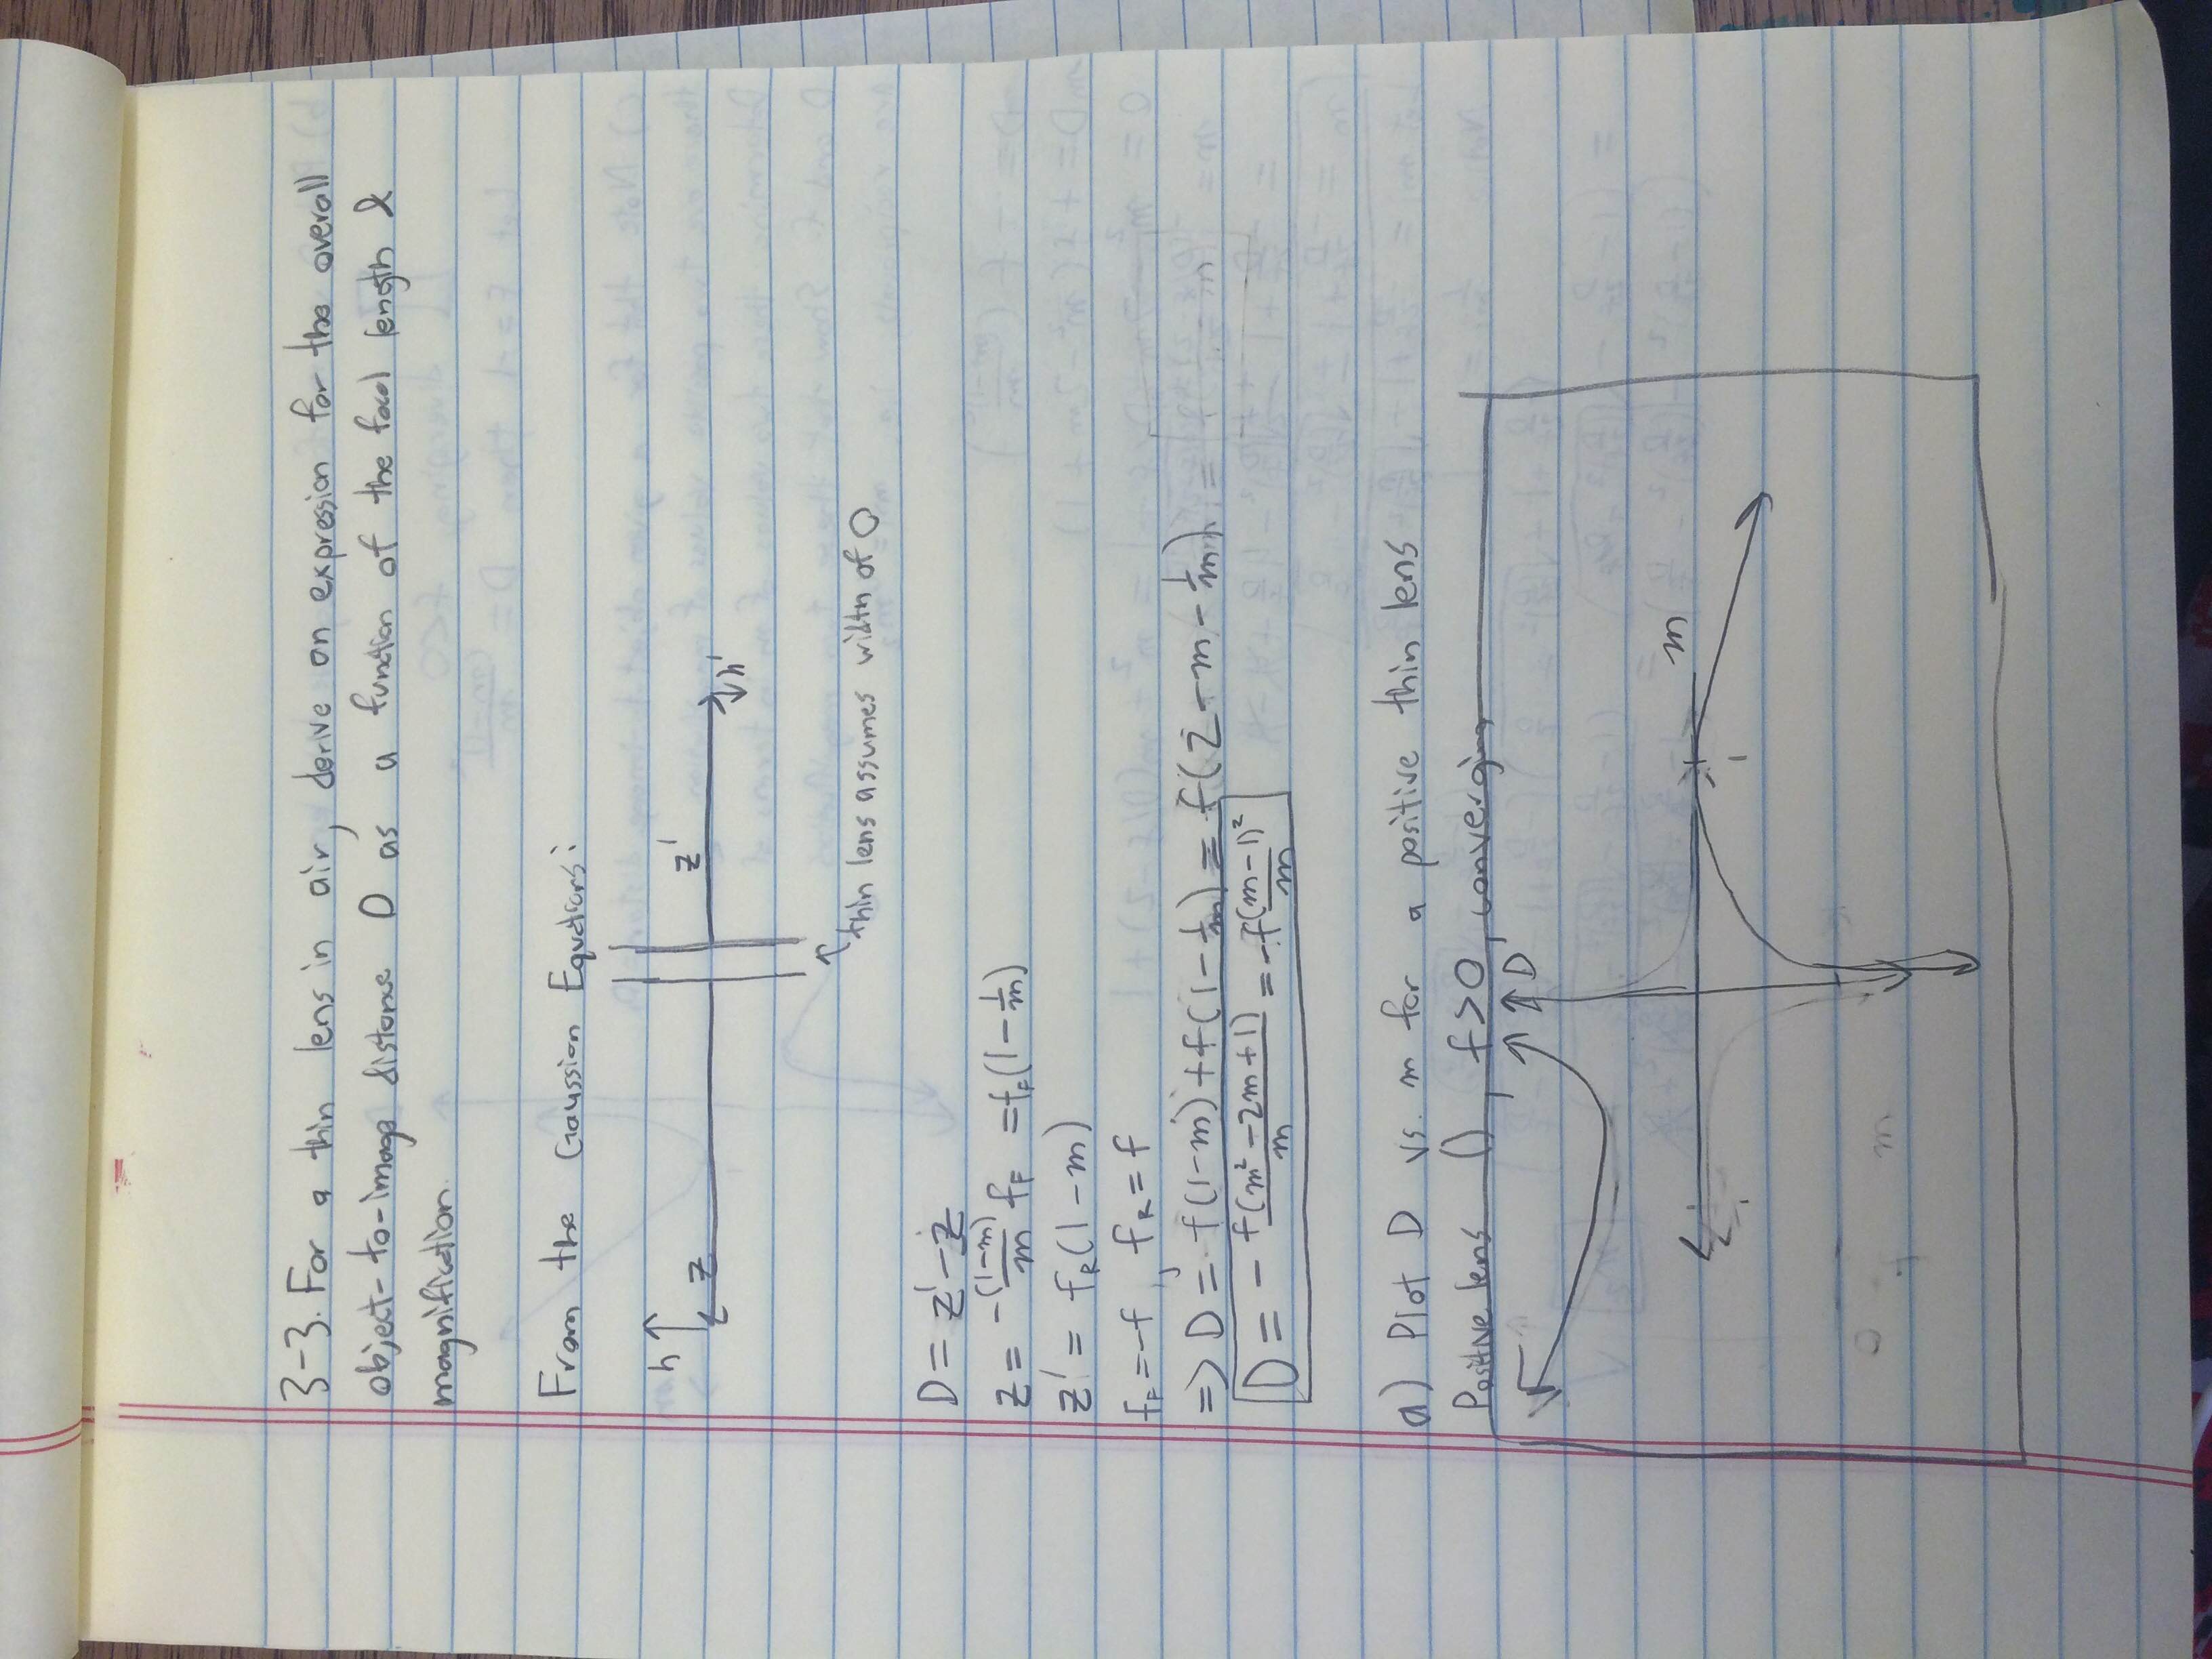 3-3. For a thin lens in air, derive an expression for the overall
object-to-image distance D as a function of the focal length &
magnification.
From the Gaussian Equations:
h z z' h'
thin lens assumes width of 0
D = z' - z
z = -(1-m)/m f_F = f_F(1 - 1/m)
z' = f_R(1-m)
f_F = -f, f_R = f
=> D = f(1-m) + f(1 - 1/m) = f(2 - m - 1/m)
D = - f(m² - 2m + 1)/m = -f (m-1)²/m
a) Plot D vs. m for a positive thin lens
Positive lens (), f>0, converging
D
m
1